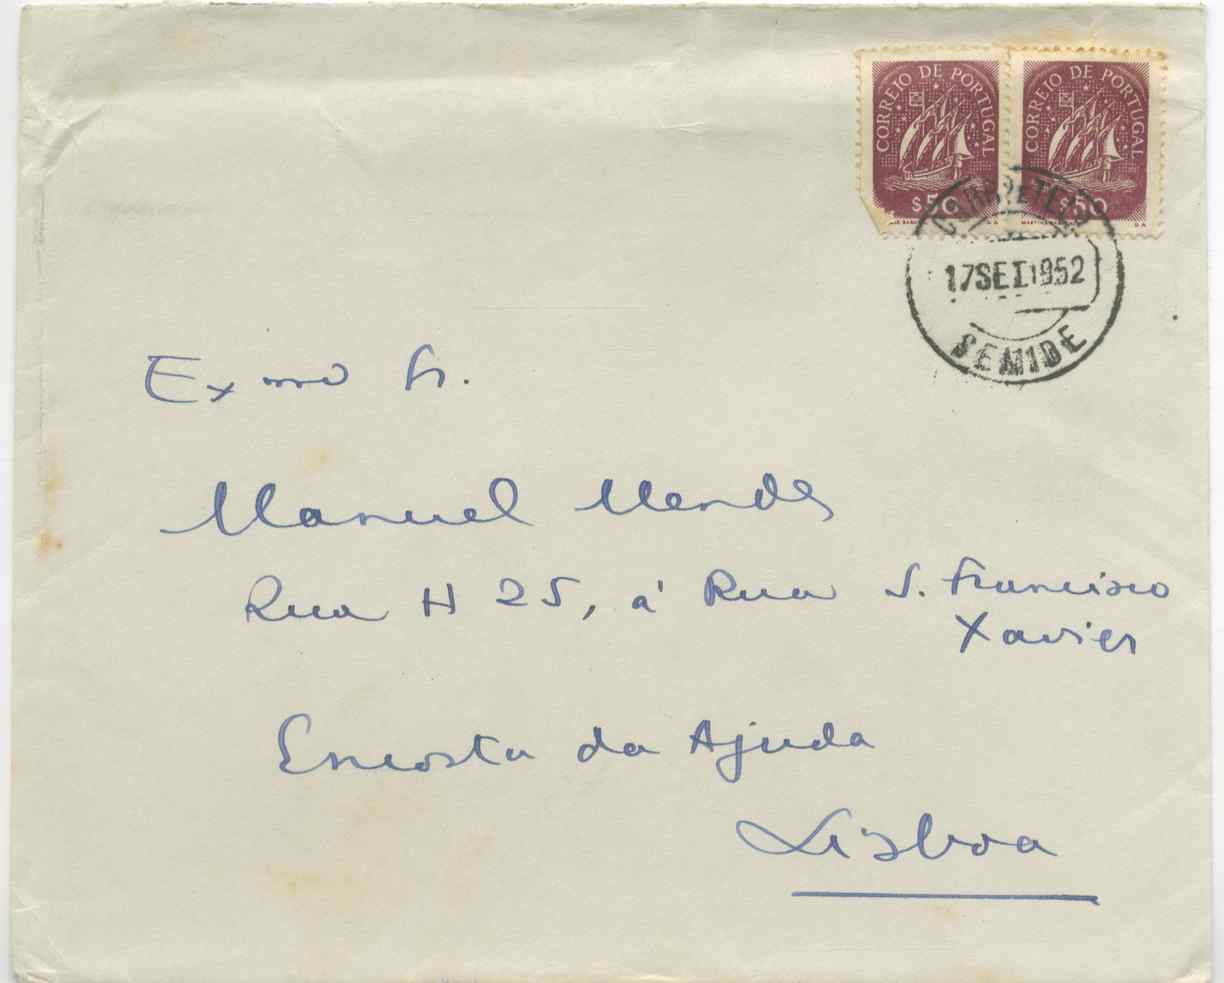 CORREIO DE PORTUGAL
$50
CORREIO DE PORTUGAL
$50
17 SET 1952
SEMIDE
Exmo Sr.
Manuel Mendes
Rua H 25, à Rua S. Francisco
Xavier
Encosta da Ajuda
Lisboa